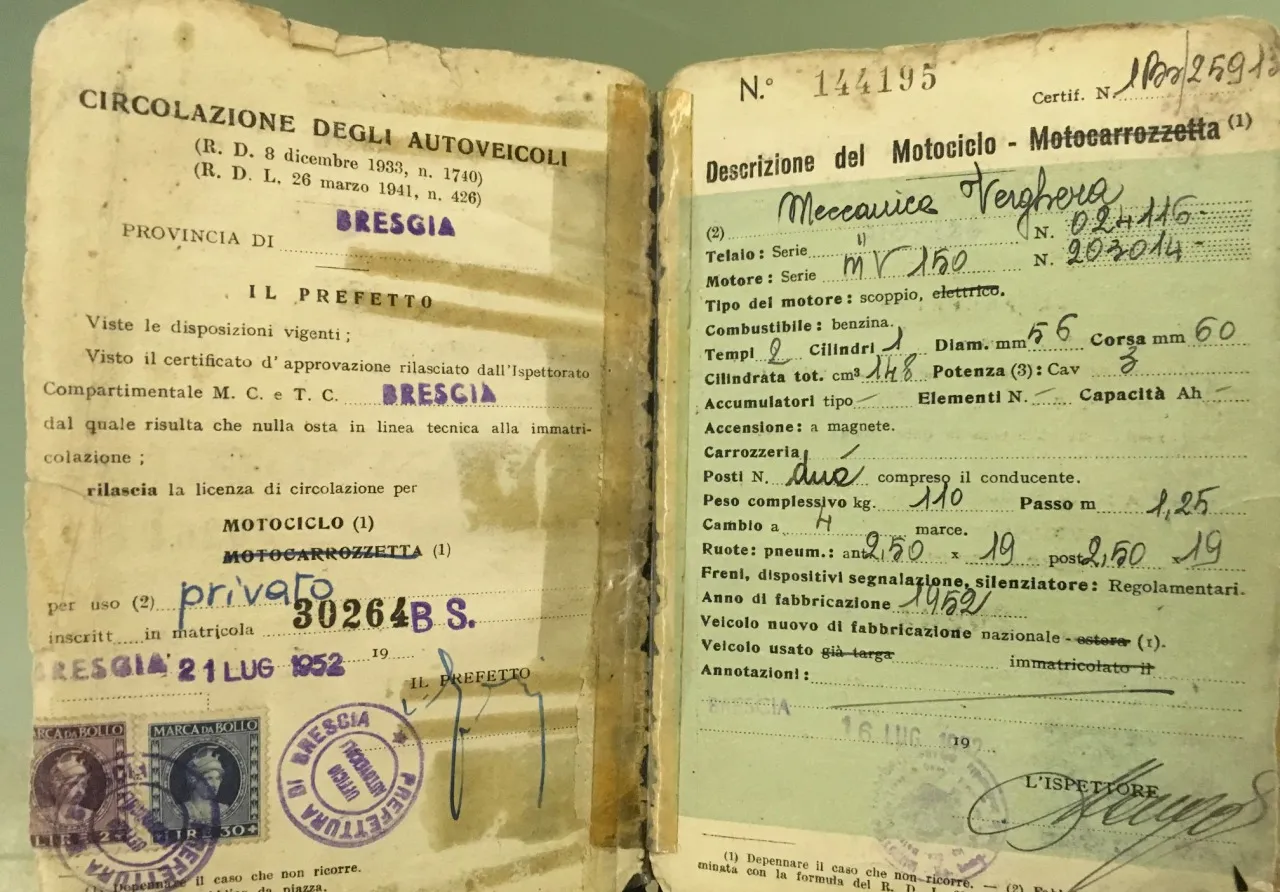 CIRCOLAZIONE DEGLI AUTOVEICOLI
(R. D. 8 dicembre 1933, n. 1740)
(R. D. L. 26 marzo 1941, n. 426)
PROVINCIA DI BRESCIA
IL PREFETTO
Viste le disposizioni vigenti ;
Visto il certificato d' approvazione rilasciato dall'Ispettorato
Compartimentale M. C. e T. C. BRESCIA
dal quale risulta che nulla osta in linea tecnica alla immatri-
colazione ;
rilascia la licenza di circolazione per
MOTOCICLO (1)
MOTOCARROZZETTA (1)
per uso (2) privato
inscritt in matricola 30264 BS.
BRESCIA 21 LUG 1952 19
IL PREFETTO
MARCA DA BOLLO
MARCA DA BOLLO
LIRE 30
PREFETTURA DI BRESCIA
UFFICIO
AUTOVEICOLI
(1) Depennare il caso che non ricorre.
da piazza.
N.° 144195
Certif. N. 1Bs/25913
Descrizione del Motociclo - Motocarrozzetta (1)
(2) Meccanica Verghera
Telaio: Serie " N. 024116-
Motore: Serie MV 150 N. 203014-
Tipo del motore: scoppio, elettrico.
Combustibile: benzina.
Tempi 2 Cilindri 1 Diam. mm 56 Corsa mm 60
Cilindrata tot. cm³ 148 Potenza (3): Cav 3
Accumulatori tipo — Elementi N. — Capacità Ah —
Accensione: a magnete.
Carrozzeria —
Posti N. due compreso il conducente.
Peso complessivo kg. 110 Passo m 1,25
Cambio a 4 marce.
Ruote: pneum.: ant 2,50 x 19 post 2,50 x 19
Freni, dispositivi segnalazione, silenziatore: Regolamentari.
Anno di fabbricazione 1952
Veicolo nuovo di fabbricazione nazionale - estera (1).
Veicolo usato già targa immatricolato il
Annotazioni:
BRESCIA
16 LUG 1952 19
L'ISPETTORE
(1) Depennare il caso che non ricorre. — (2)
minata con la formula del R. D.